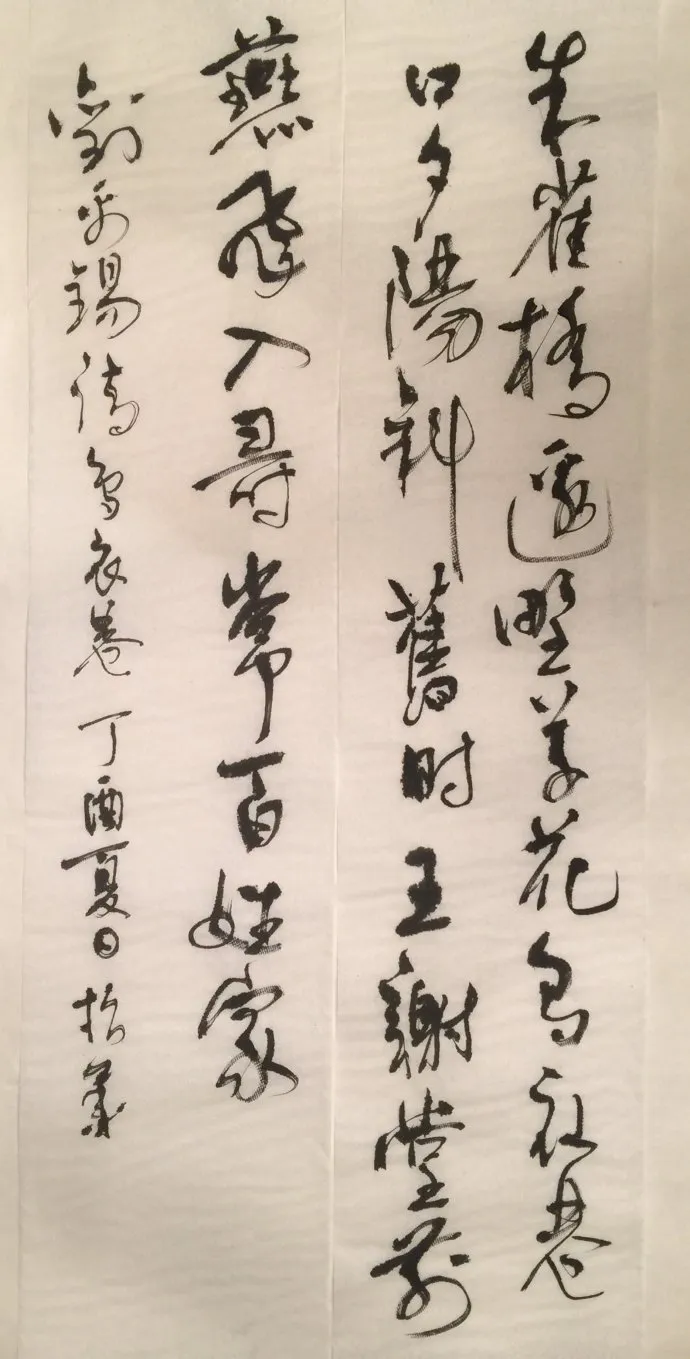 朱雀橋邊野草花烏衣巷
口夕陽斜舊时王謝堂前
燕飛入尋常百姓家
劉禹錫詩烏衣巷丁酉夏日